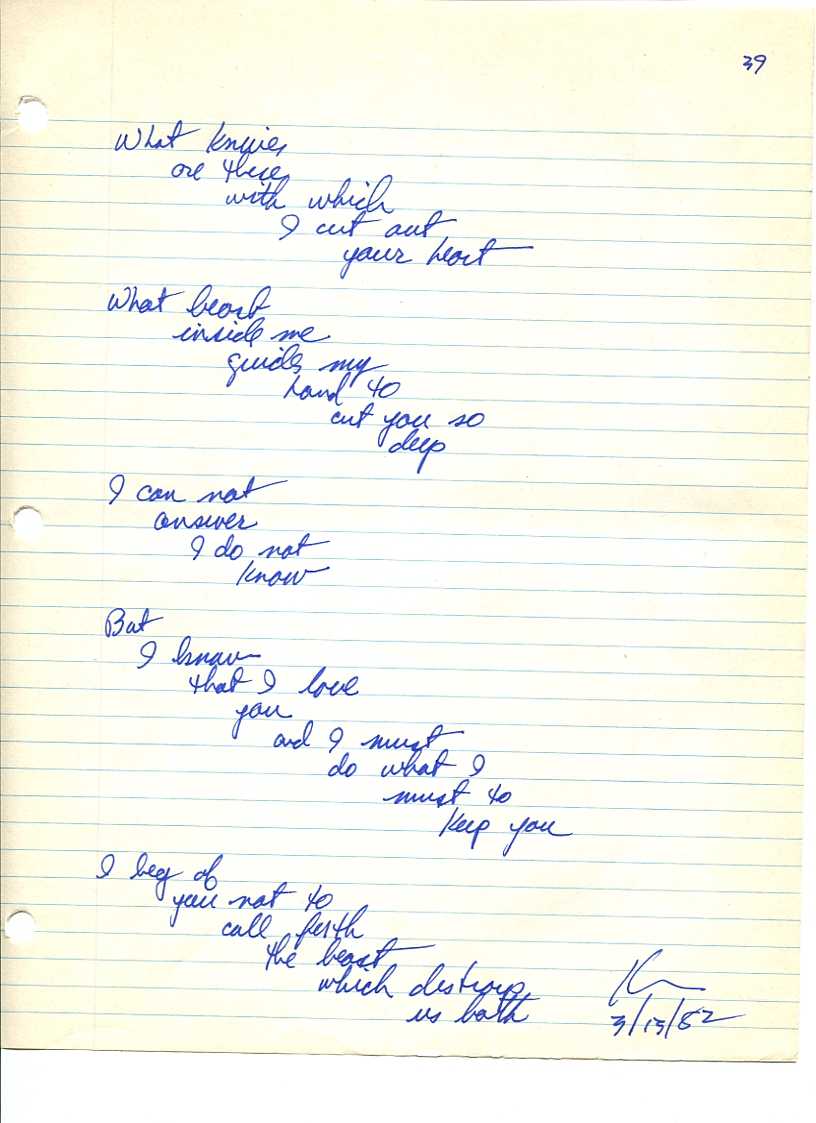 39
What knives
are these
with which
I cut out
your heart
What beast
inside me
guides my
hand to
cut you so
deep
I can not
answer
I do not
know
But
I know
that I love
you
and I must
do what I
must to
keep you
I beg of
you not to
call forth
the beast
which destroys
us both
K
3/13/82